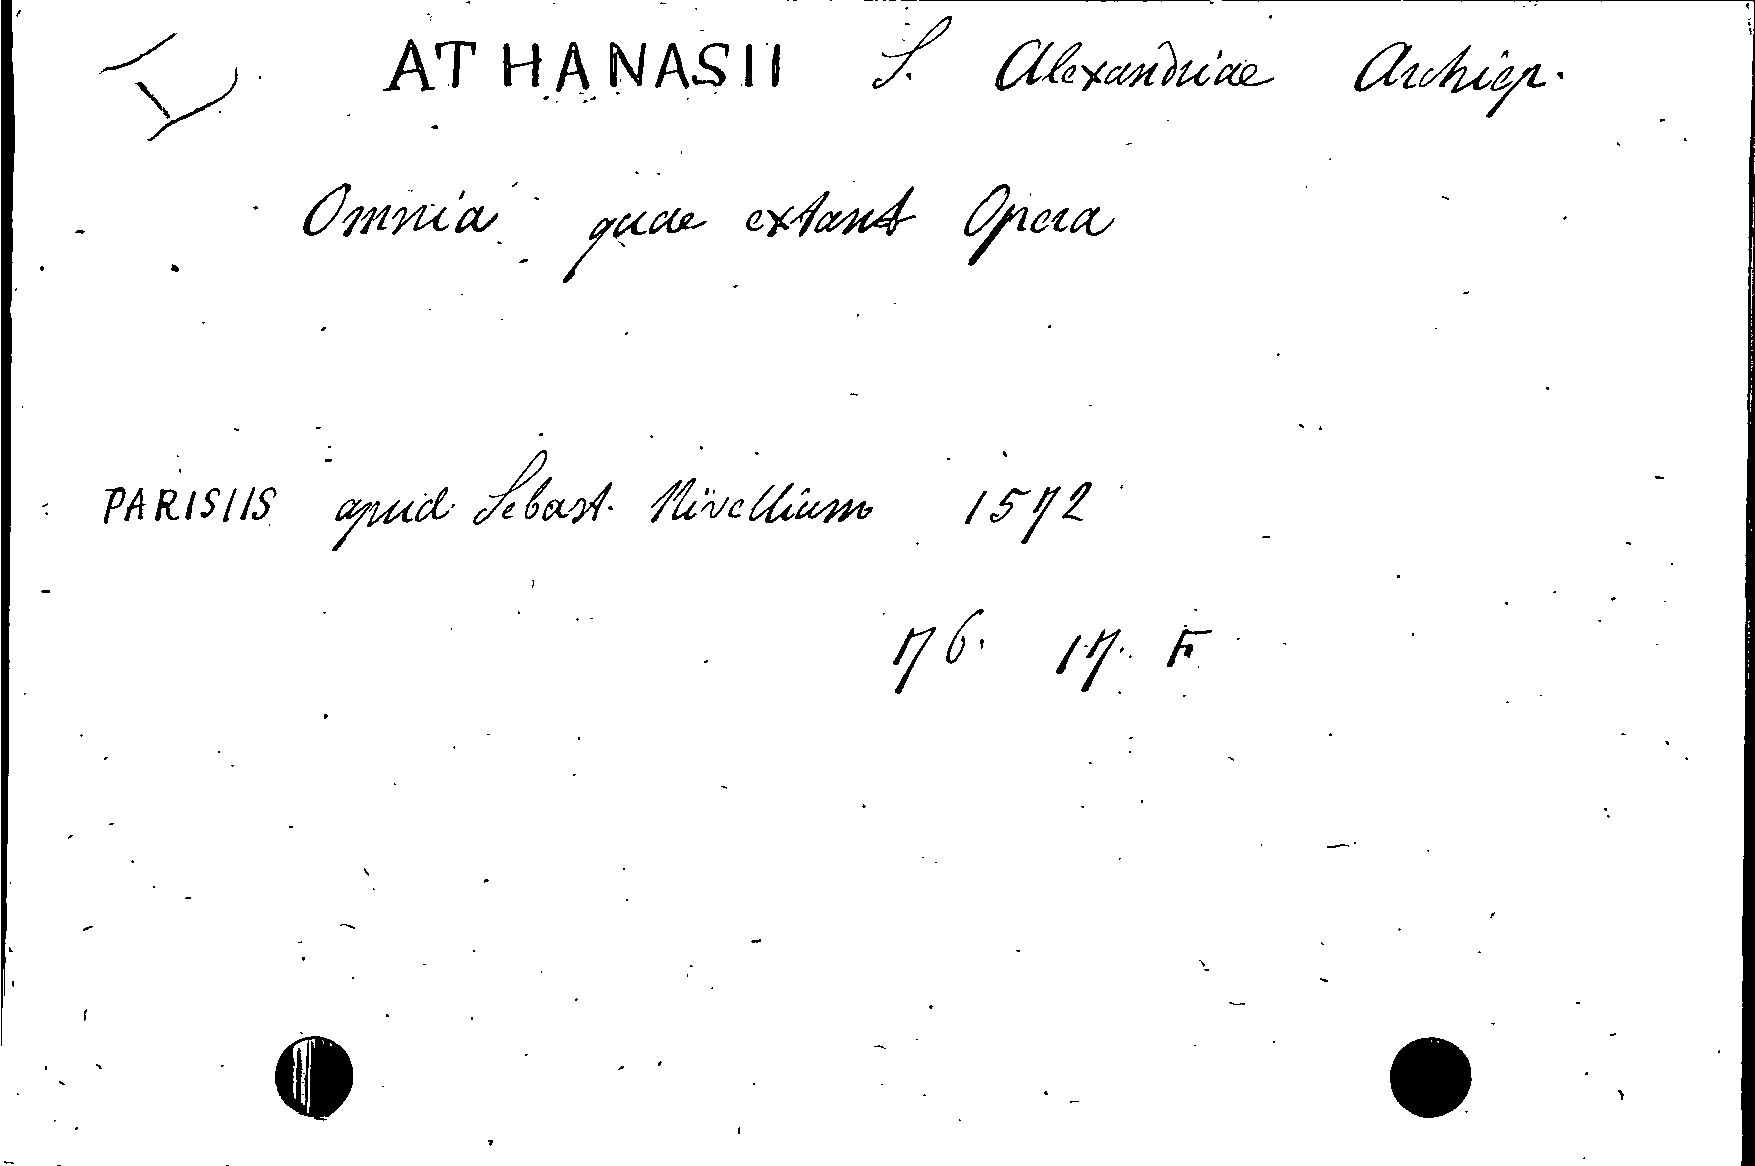 ATHANASII S. Alexandriae Archiep.
Omnia quae extant Opera
PARISIIS apud Sebast. Nivellium 1572
76. 17. F